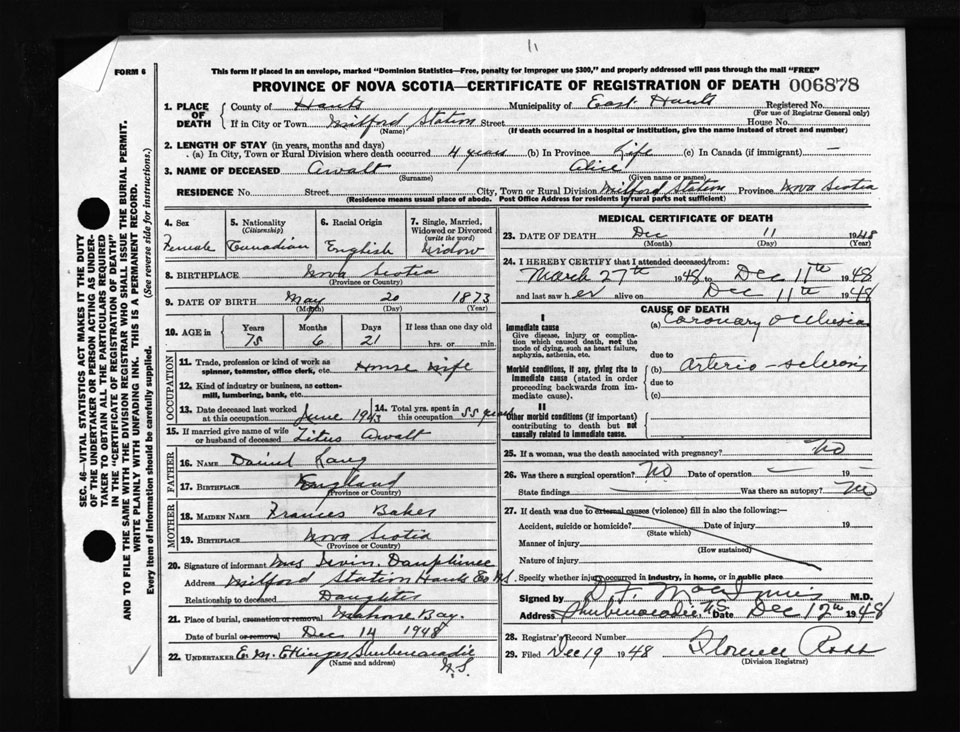 11
FORM 6
This form if placed in an envelope, marked "Dominion Statistics—Free, penalty for improper use $300," and properly addressed will pass through the mail "FREE"
PROVINCE OF NOVA SCOTIA—CERTIFICATE OF REGISTRATION OF DEATH 006878
1. PLACE OF DEATH
County of Hants Municipality of East Hants Registered No.
(For use of Registrar General only)
If in City or Town Milford Station Street House No.
(Name) (If death occurred in a hospital or institution, give the name instead of street and number)
2. LENGTH OF STAY (in years, months and days)
(a) In City, Town or Rural Division where death occurred 4 years (b) In Province Life (c) In Canada (if immigrant) —
3. NAME OF DECEASED Awalt Alice
(Surname) (Given name or names)
RESIDENCE No. Street City, Town or Rural Division Milford Station Province Nova Scotia
(Residence means usual place of abode. Post Office Address for residents in rural parts not sufficient)
4. Sex
Female
5. Nationality
(Citizenship)
Canadian
6. Racial Origin
English
7. Single, Married, Widowed or Divorced
(write the word)
Widow
8. BIRTHPLACE Nova Scotia
(Province or Country)
9. DATE OF BIRTH May 20 1873
(Month) (Day) (Year)
10. AGE in Years Months Days If less than one day old
75 6 21 hrs. or min.
OCCUPATION
11. Trade, profession or kind of work as
spinner, teamster, office clerk, etc. House Wife
12. Kind of industry or business, as cotton-
mill, lumbering, bank, etc.
13. Date deceased last worked
at this occupation June 1943
14. Total yrs. spent in
this occupation 55 years
15. If married give name of wife
or husband of deceased Titus Awalt
FATHER
16. NAME Daniel Lang
17. BIRTHPLACE England
(Province or Country)
MOTHER
18. MAIDEN NAME Frances Baker
19. BIRTHPLACE Nova Scotia
(Province or Country)
20. Signature of informant Mrs Irvin Dauphinee
Address Milford Station Hants Co N.S.
Relationship to deceased Daughter
21. Place of burial, cremation or removal Mahone Bay.
Date of burial or removal Dec 14 1948
22. UNDERTAKER E. M. Ettinger Shubenacadie
(Name and address) N.S.
MEDICAL CERTIFICATE OF DEATH
23. DATE OF DEATH Dec 11 1948
(Month) (Day) (Year)
24. I HEREBY CERTIFY that I attended deceased from:
March 27th 1948 to Dec 11th 1948
and last saw her alive on Dec 11th 1948
CAUSE OF DEATH
I
Immediate cause
Give disease, injury or complication which caused death, not the mode of dying, such as heart failure, asphyxia, asthenia, etc.
(a) Coronary Occlusion
due to
Morbid conditions, if any, giving rise to immediate cause (stated in order proceeding backwards from immediate cause).
(b) Arterio-sclerosis
due to
(c)
II
Other morbid conditions (if important) contributing to death but not causally related to immediate cause.
25. If a woman, was the death associated with pregnancy? No
26. Was there a surgical operation? No Date of operation — 19 —
State findings — Was there an autopsy? No
27. If death was due to external causes (violence) fill in also the following:—
Accident, suicide or homicide? Date of injury 19
(State which)
Manner of injury
(How sustained)
Nature of injury
Specify whether injury occurred in industry, in home, or in public place
Signed by M.D.
Address Shubenacadie, N.S. Date Dec 12th 1948
28. Registrar's Record Number
29. Filed Dec 19 1948 Florence Ross
(Division Registrar)
SEC. 46—VITAL STATISTICS ACT MAKES IT THE DUTY
OF THE UNDERTAKER OR PERSON ACTING AS UNDER-
TAKER TO OBTAIN ALL THE PARTICULARS REQUIRED
IN THE "CERTIFICATE OF REGISTRATION OF DEATH"
AND TO FILE THE SAME WITH THE DIVISION REGISTRAR WHO SHALL ISSUE THE BURIAL PERMIT.
WRITE PLAINLY WITH UNFADING INK. THIS IS A PERMANENT RECORD.
Every item of information should be carefully supplied. (See reverse side for instructions.)